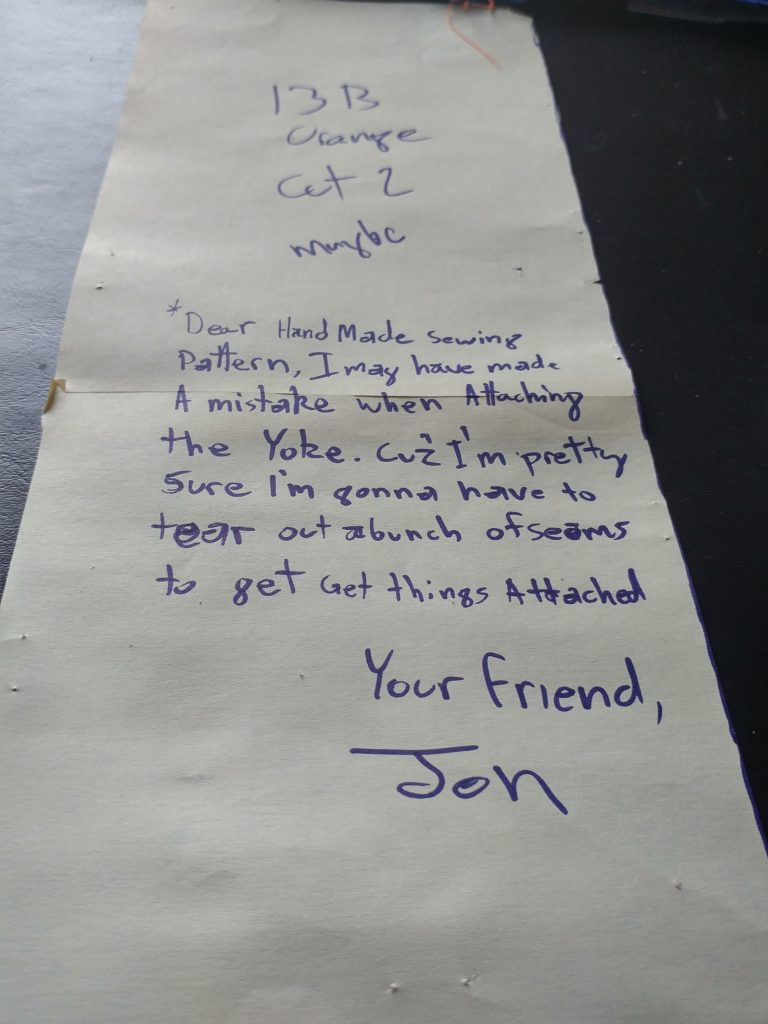 13 B
Orange
Cut 2
maybe
*Dear Hand Made sewing
Pattern, I may have made
A mistake when Attaching
the Yoke. Cuz I'm pretty
Sure I'm gonna have to
tear out a bunch of seams
to get Get things Attached
Your friend,
Jon